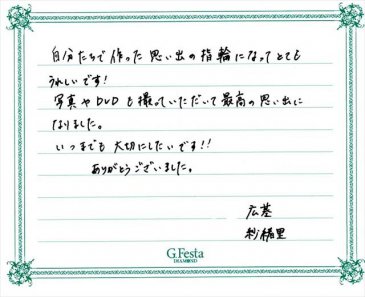 自分たちで作った思い出の指輪になってとても
うれしいです!
写真やDVDも撮っていただいて最高の思い出に
なりました。
いつまでも大切にしたいです!!
ありがとうございました。
広基
G.Festa
DIAMOND